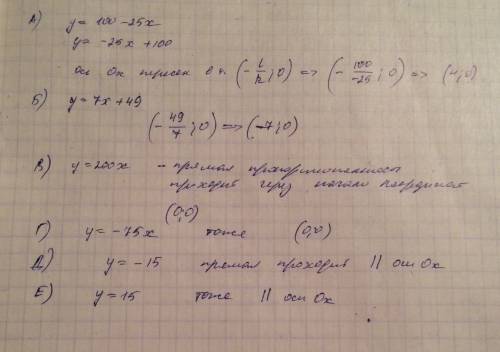 А) y = 100 - 25x
y = -25x + 100
ось Ox пересек в т. (-l/k; 0) => (-100/-25; 0) => (4; 0)
Б) y = 7x + 49
(-49/7; 0) => (-7; 0)
В) y = 200x - прямая пропорциональность
проходит через начало координат
(0; 0)
Г) y = -75x тоже (0; 0)
Д) y = -15 прямая проходит || оси Ox
Е) y = 15 тоже || оси Ox